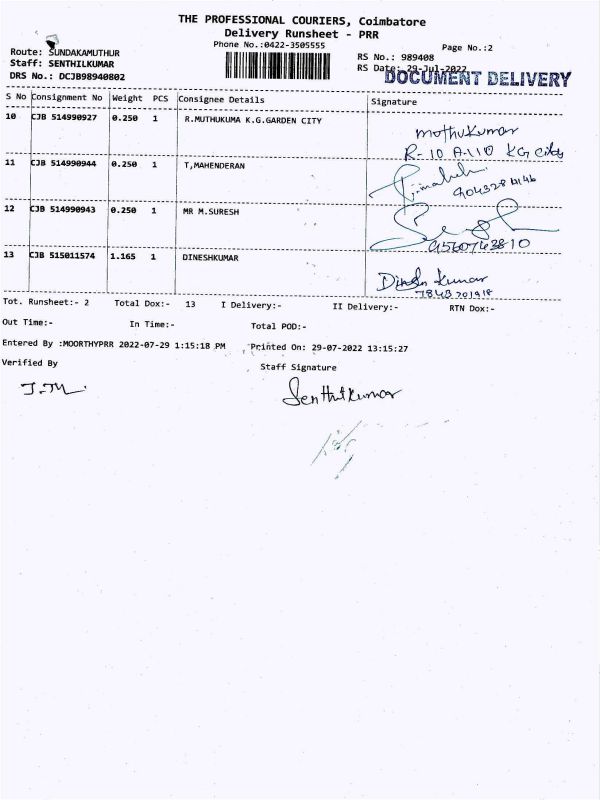 THE PROFESSIONAL COURIERS, Coimbatore
Delivery Runsheet - PRR
Phone No.:0422-3505555
Page No.:2
Route: SUNDAKAMUTHUR
Staff: SENTHILKUMAR
DRS No.: DCJB98940802
RS No.: 989408
RS Date: 29-Jul-2022
DOCUMENT DELIVERY
S No Consignment No Weight PCS Consignee Details Signature
10 CJB 514990927 0.250 1 R.MUTHUKUMA K.G.GARDEN CITY
mothukumar
R-10 A-110 KG City
11 CJB 514990944 0.250 1 T,MAHENDERAN
12 CJB 514990943 0.250 1 MR M.SURESH
9560763810
13 CJB 515011574 1.165 1 DINESHKUMAR
Dinesh Kumar
Tot. Runsheet:- 2 Total Dox:- 13 I Delivery:- II Delivery:- RTN Dox:-
Out Time:- In Time:- Total POD:-
Entered By :MOORTHYPRR 2022-07-29 1:15:18 PM Printed On: 29-07-2022 13:15:27
Verified By Staff Signature
Senthilkumar